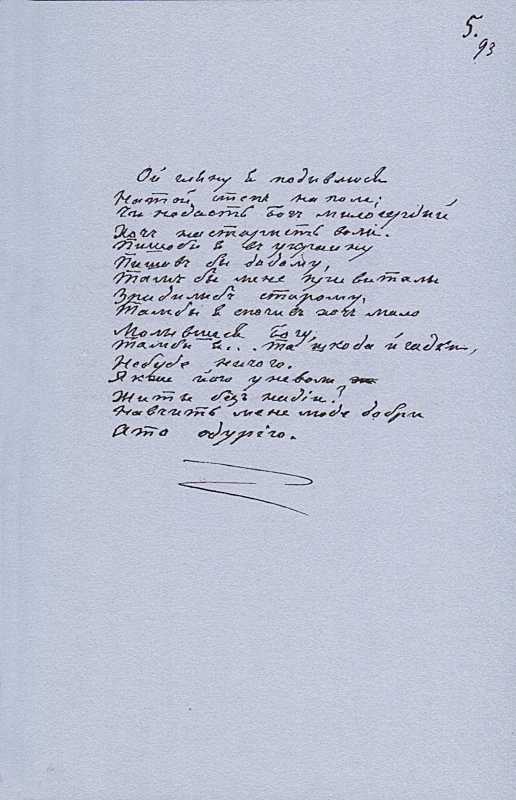 5.
93
Ой гляну я подывлюся
На той степъ на поле;
Чи недасть богъ милосердий
Хочь на старисть воли.
Пишовъ бы я въ украину
Пишовъ бы додому,
Тамъ бы мене привиталы
Зрадилыбъ старому,
Тамбы я спочивъ хоть мало
Молывшися богу,
Тамбы я... та шкода й гадки,
Небуде ничого.
Якже його у неволи
Житы безъ надіи?
Навчить мене люде добри
Ато одурію.